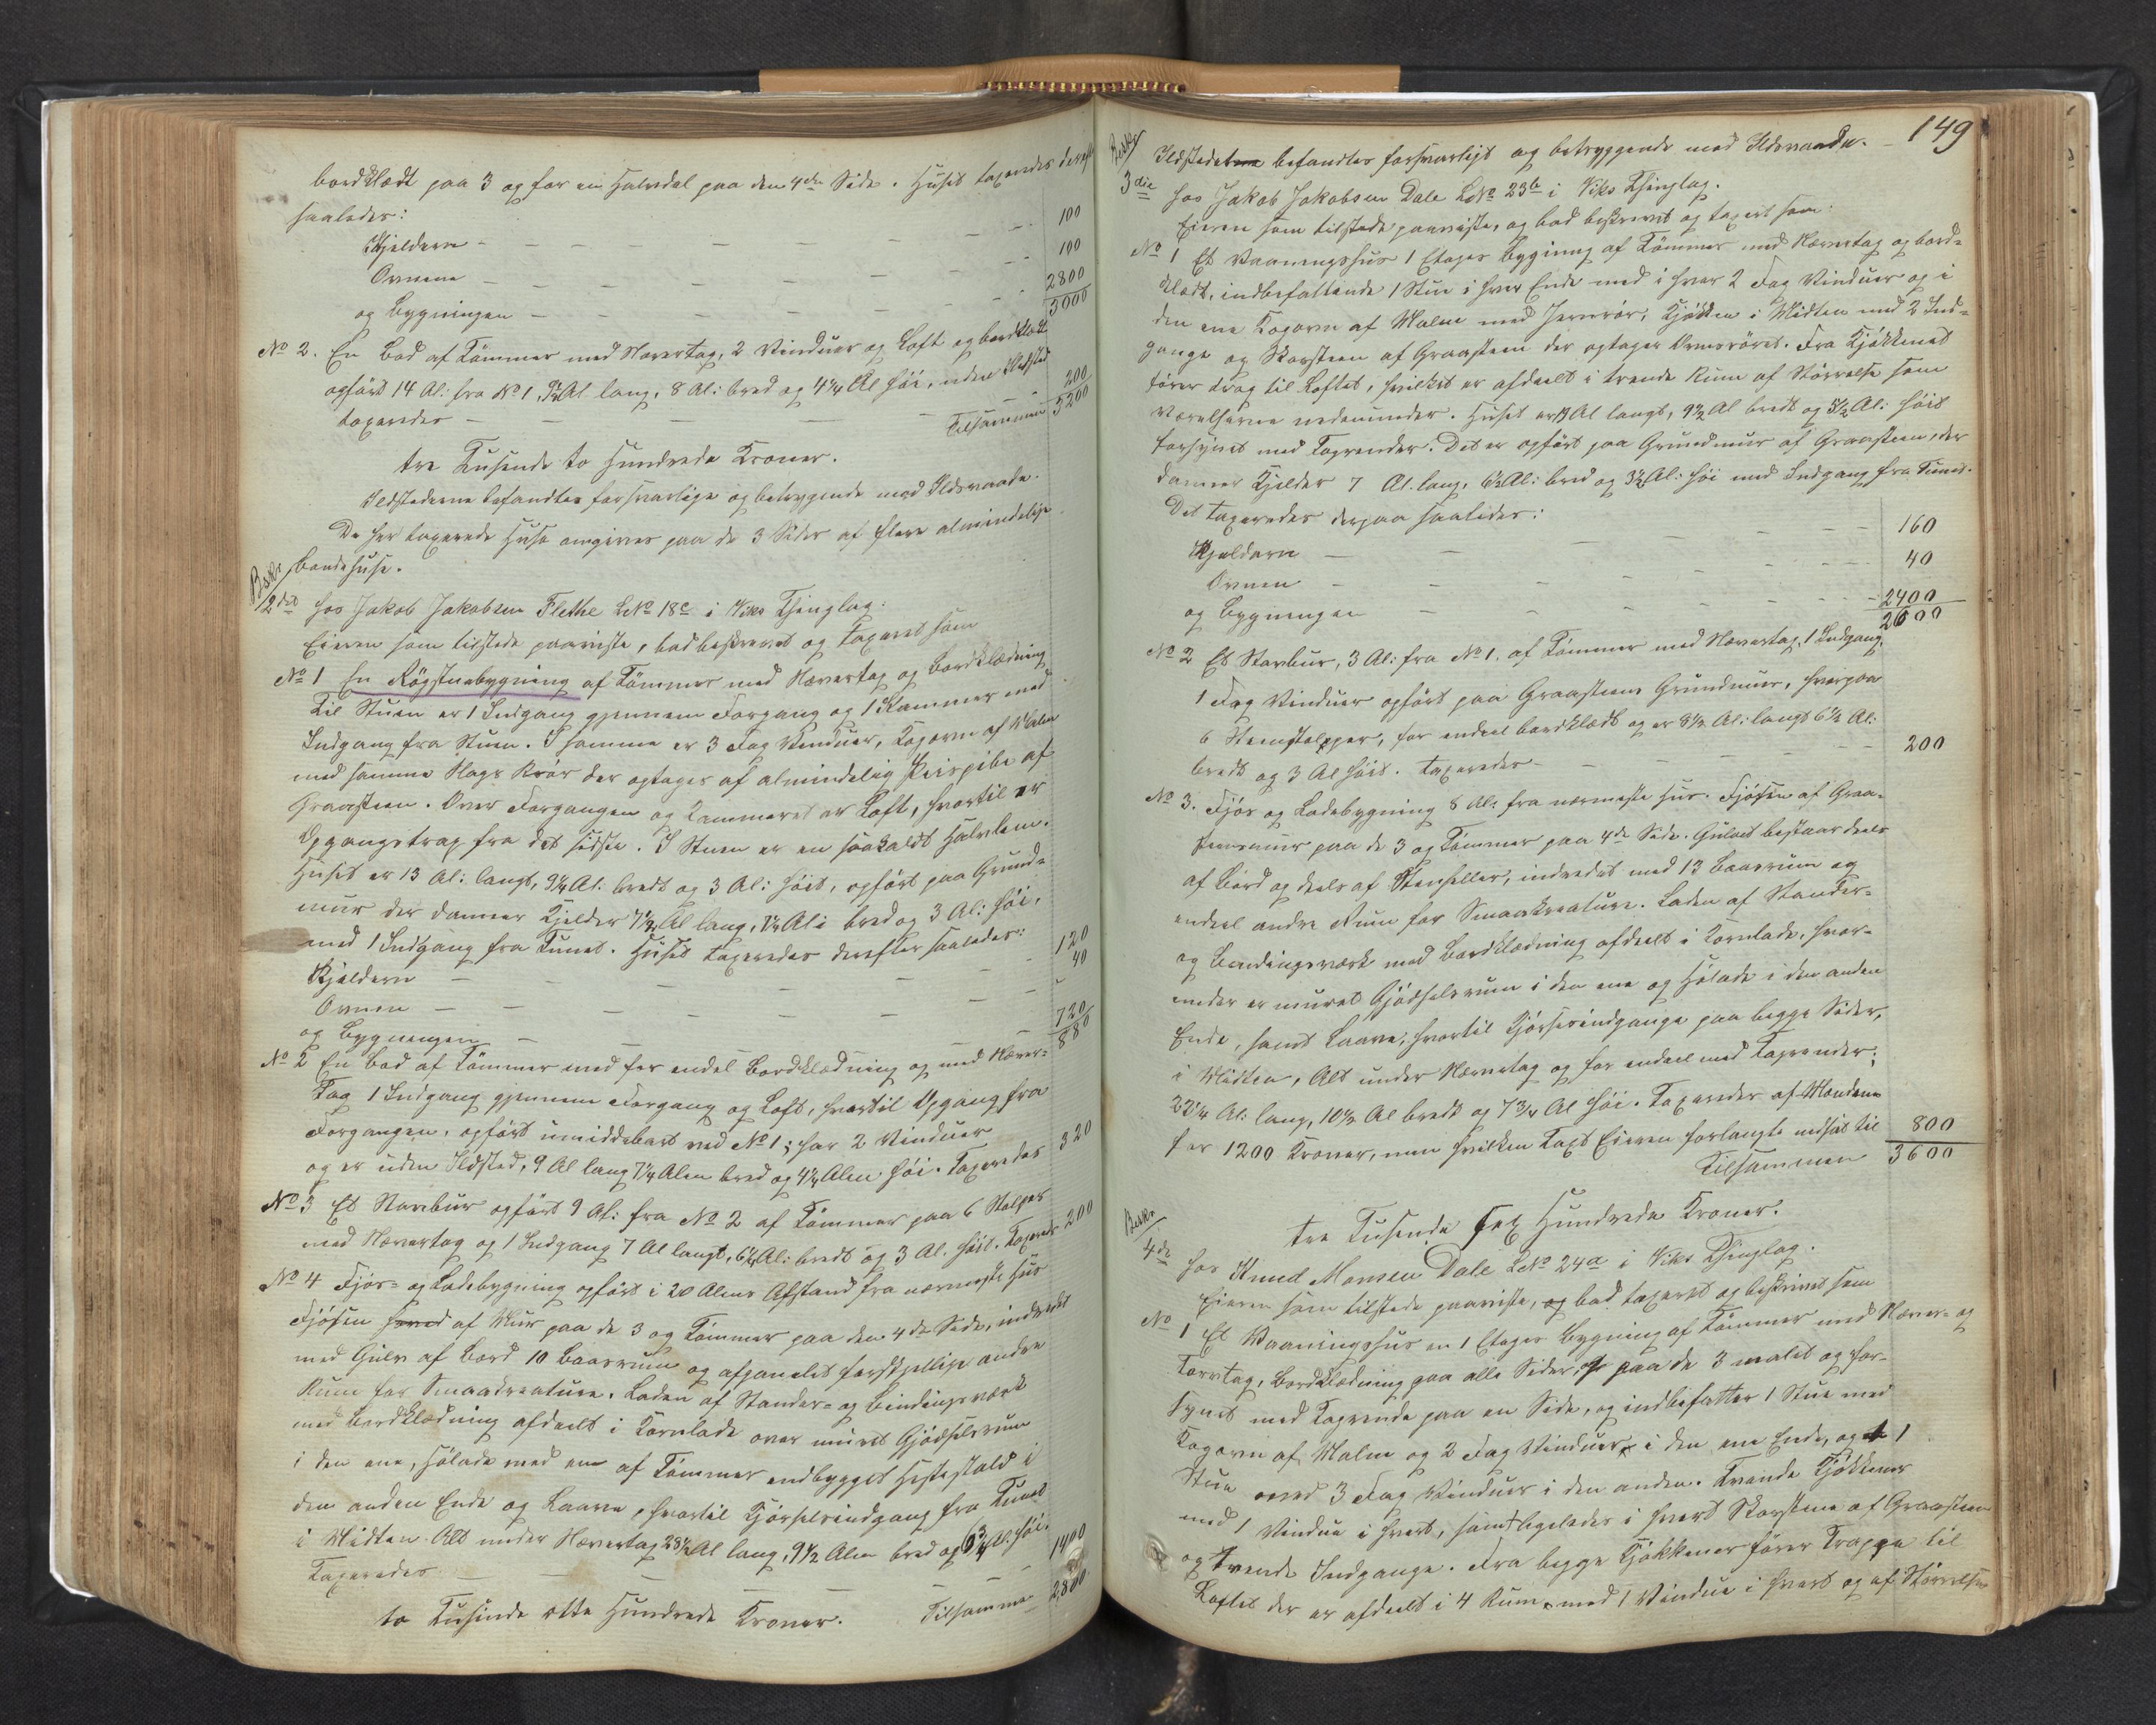 bordklædt paa 3 og for en Halvdel paa den 4de Side. Huset taxeredes derefter
saaledes:
Kjelderen - - - - - 100
Ovnene - - - - - 100
og Bygningen - - - - - 2800
3000
No 2. En Bod af Tømmer med Nævertag, 2 Vinduer og Loft og bordklædt
opført 14 Al: fra No 1, Al lang, 8 Al: bred og 4 1/4 Al høi, uden Ildsted
taxeredes - - - - 200
Tilsammen 3200
tre Tusende to Hundrede Kroner.
Ildstederne befandtes forsvarlige og betryggende mod Ildsvaade.
De her taxerede Huse omgives paa de 3 Sider af flere almindelige
Bondehuse.
Beskr
2det Hos Jakob Jakobsen Flethe LNo 18c i Viks Thinglag:
Eieren som tilstede paaviste, bad beskrevet og taxeret som
No 1 En Røgstuebygning af Tømmer med Nævertag og Bordklædning
Til Stuen er 1 Indgang gjennem Forgang og 1 Kammer med
Indgang fra Stuen. I samme er 3 Fag Vinduer, Kogovn af Malm
med samme Slags Rør der optages af almindelig Peispibe af
Graasteen. Over Forgangen og Kammeret er Loft, hvortil er
Opgangstrap fra det sidste. I Stuen er en saakaldt Halvlem.
Huset er 13 Al: langt, 9 1/4 Al: bredt og 3 Al: høit, opført paa Grund-
mur der danner Kjelder 7 1/2 Al lang, 7 1/2 Al: bred og 3 Al: høi,
med 1 Indgang fra Tunet. Huset taxeredes derefter saaledes:
Kjelderen - - - - - 120
Ovnen - - - - - 40
og Bygningen - - - - - 720
880
No 2 En Bod af Tømmer med for endel Bordklædning og med Næver-
tag 1 Indgang gjennem Forgang og Loft, hvortil Opgang fra
Forgangen, opført umiddelbart ved No 1; har 2 Vinduer
og er uden Ildsted, 9 Al lang 7 1/4 Alen bred og 4 1/4 Alen høi. Taxeredes 320
No 3 Et Stavbur opført 9 Al: fra No 2 af Tømmer paa 6 Stolper
med Nævertag og 1 Indgang 7 Al langt, 6 1/4 Al: bredt og 3 Al. høit. Taxeres 200
No 4 Fjøs- og Ladebygning opført i 20 Alens Afstand fra nærmeste Hus
Fjøsen af Mur paa de 3 og Tømmer paa den 4de Side, indredet
med Gulv af Bord 10 Baasrum og afpanelet forskjellige andre
Rum for Smaakreature. Laden af Stander- og Bindingsværk
med Bordklædning afdeelt i Kornlade over muret Gjødselrum
i den ene, Hølade med en af Tømmer endbygget Hestestald i
den anden Ende og Laave, hvortil Kjørselsindgang fra Tunet
i Midten. Alt under Nævertag 23 1/2 Al lang, 9 1/2 Alen bred og 6 3/4 Al: høi.
Taxeredes - - - - - 1400
Tilsammen 2800
to Tusinde otte Hundrede Kroner.
149
Beskr
Ildstedet befandtes forsvarligt og betryggende mod Ildsvaade.
3die Hos Jakob Jakobsen Dale LNo 23b i Viks Thinglag.
Eieren som tilstede paaviste, og bad beskrevet og taxeret som:
No 1 Et Vaaningshus 1 Etages Bygning af Tømmer med Nævertag og bord-
klædt, indbefattende 1 Stue i hver Ende med i hver 2 Fag Vinduer og i
den ene Kogovn af Malm med Jernrør; Kjøkken i Midten med 2 Ind-
gange og Skorsteen af Graasteen der optager Ovnsrøret. Fra Kjøkkenet
fører trap til Loftet, hvilket er afdeelt i trende Rum af Størrelse som
Værelserne nedenunder. Huset er Al langt, 9 1/2 Al bredt og 5 1/2 Al: høit
forsynet med Tagrender. Det er opført paa Grundmur af Graasteen, der
danner Kjelder 7 Al. lang, 6 1/2 Al: bred og 3 1/4 Al: høi med Indgang fra Tunet.
Det taxeredes derpaa saaledes:
Kjelderen - - - - - 160
Ovnen - - - - - 40
og Bygningen - - - - - 2400
2600
No 2 Et Stavbur, 3 Al: fra No 1. af Tømmer med Nævertag, 1 Indgang,
1 Fag Vinduer opført paa Graasteens Grundmur, hvorpaa
6 Steenstolpper, for endeel bordklædt og er 8 1/2 Al: langt 6 1/2 Al:
bredt og 3 Al høit. Taxeredes - - - - 200
No 3. Fjøs og Ladebygning 8 Al: fra nærmeste Hus. Fjøsen af Graa-
steensmur paa de 3 og Tømmer paa 4de Side. Gulvet bestaar deels
af Bord og deels af Steenheller, indredet med 13 Baasrum og
endeel andre Rum for Smaakreature. Laden af Stander-
og Bindingsværk med Bordklædning afdeelt i Kornlade, hvor-
under er muret Gjødselsrum i den ene og Hølade i den anden
Ende, samt Laave, hvortil Kjørselsindgange paa begge Sider,
i Midten, Alt under Nævertag og for endeel med Tagrender;
22 1/4 Al: lang, 10 1/2 Al bredt og 7 3/4 Al høi. Taxeredes af Mændene
for 1200 Kroner, men hvilken Taxt Eieren forlangte nedsat til 800
Tilsammen 3600
tre Tusende sex Hundrede Kroner.
Beskr
4de Hos Knud Monsen Dale LNo 24a i Viks Thinglag.
Eieren som tilstede paaviste, og bad taxeret og beskrivet som
No 1 Et Vaaningshus en 1 Etages Bygning af Tømmer med Næver- og
Torvtag, Bordklædning paa alle Sider, og paa de 3 malet og for-
synet med Tagrende paa en Side, og indbefatter 1 Stue med
Kogovn af Malm og 2 Fag Vinduer i den ene Ende, og 1
Stue med 3 Fag Vinduer i den anden. Tvende Kjøkkener
med 1 Vindue i hvert, samt ligeledes i hvert Skorsteen af Graasteen
og tvende Indgange. Fra begge Kjøkkener fører Trappe til
Loftet der er afdeelt i 4 Rum, med 1 Vindue i hvert og af Størrelse